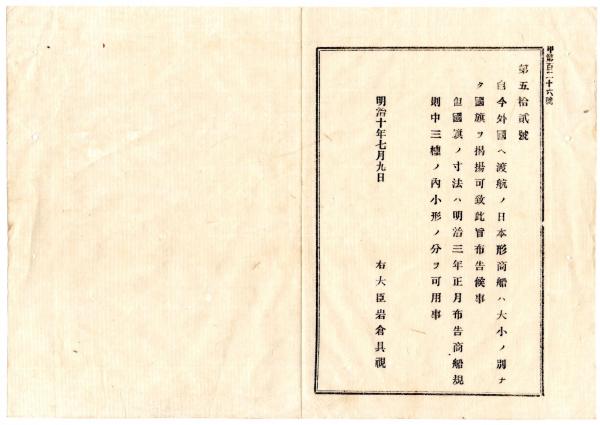 甲第百二十六號
第五拾貳號
自今外國ヘ渡航ノ日本形商船ハ大小ノ別ナ
ク國旗ヲ揭揚可致此旨布告候事
但國旗ノ寸法ハ明治三年正月布告商船規
則中三種ノ內小形ノ分ヲ可用事
明治十年七月九日
右大臣岩倉具視